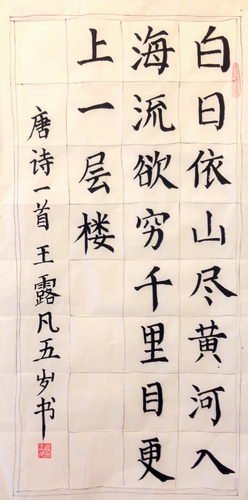 白日依山尽黄河入
海流欲穷千里目更
上一层楼
唐诗一首王露凡五岁书